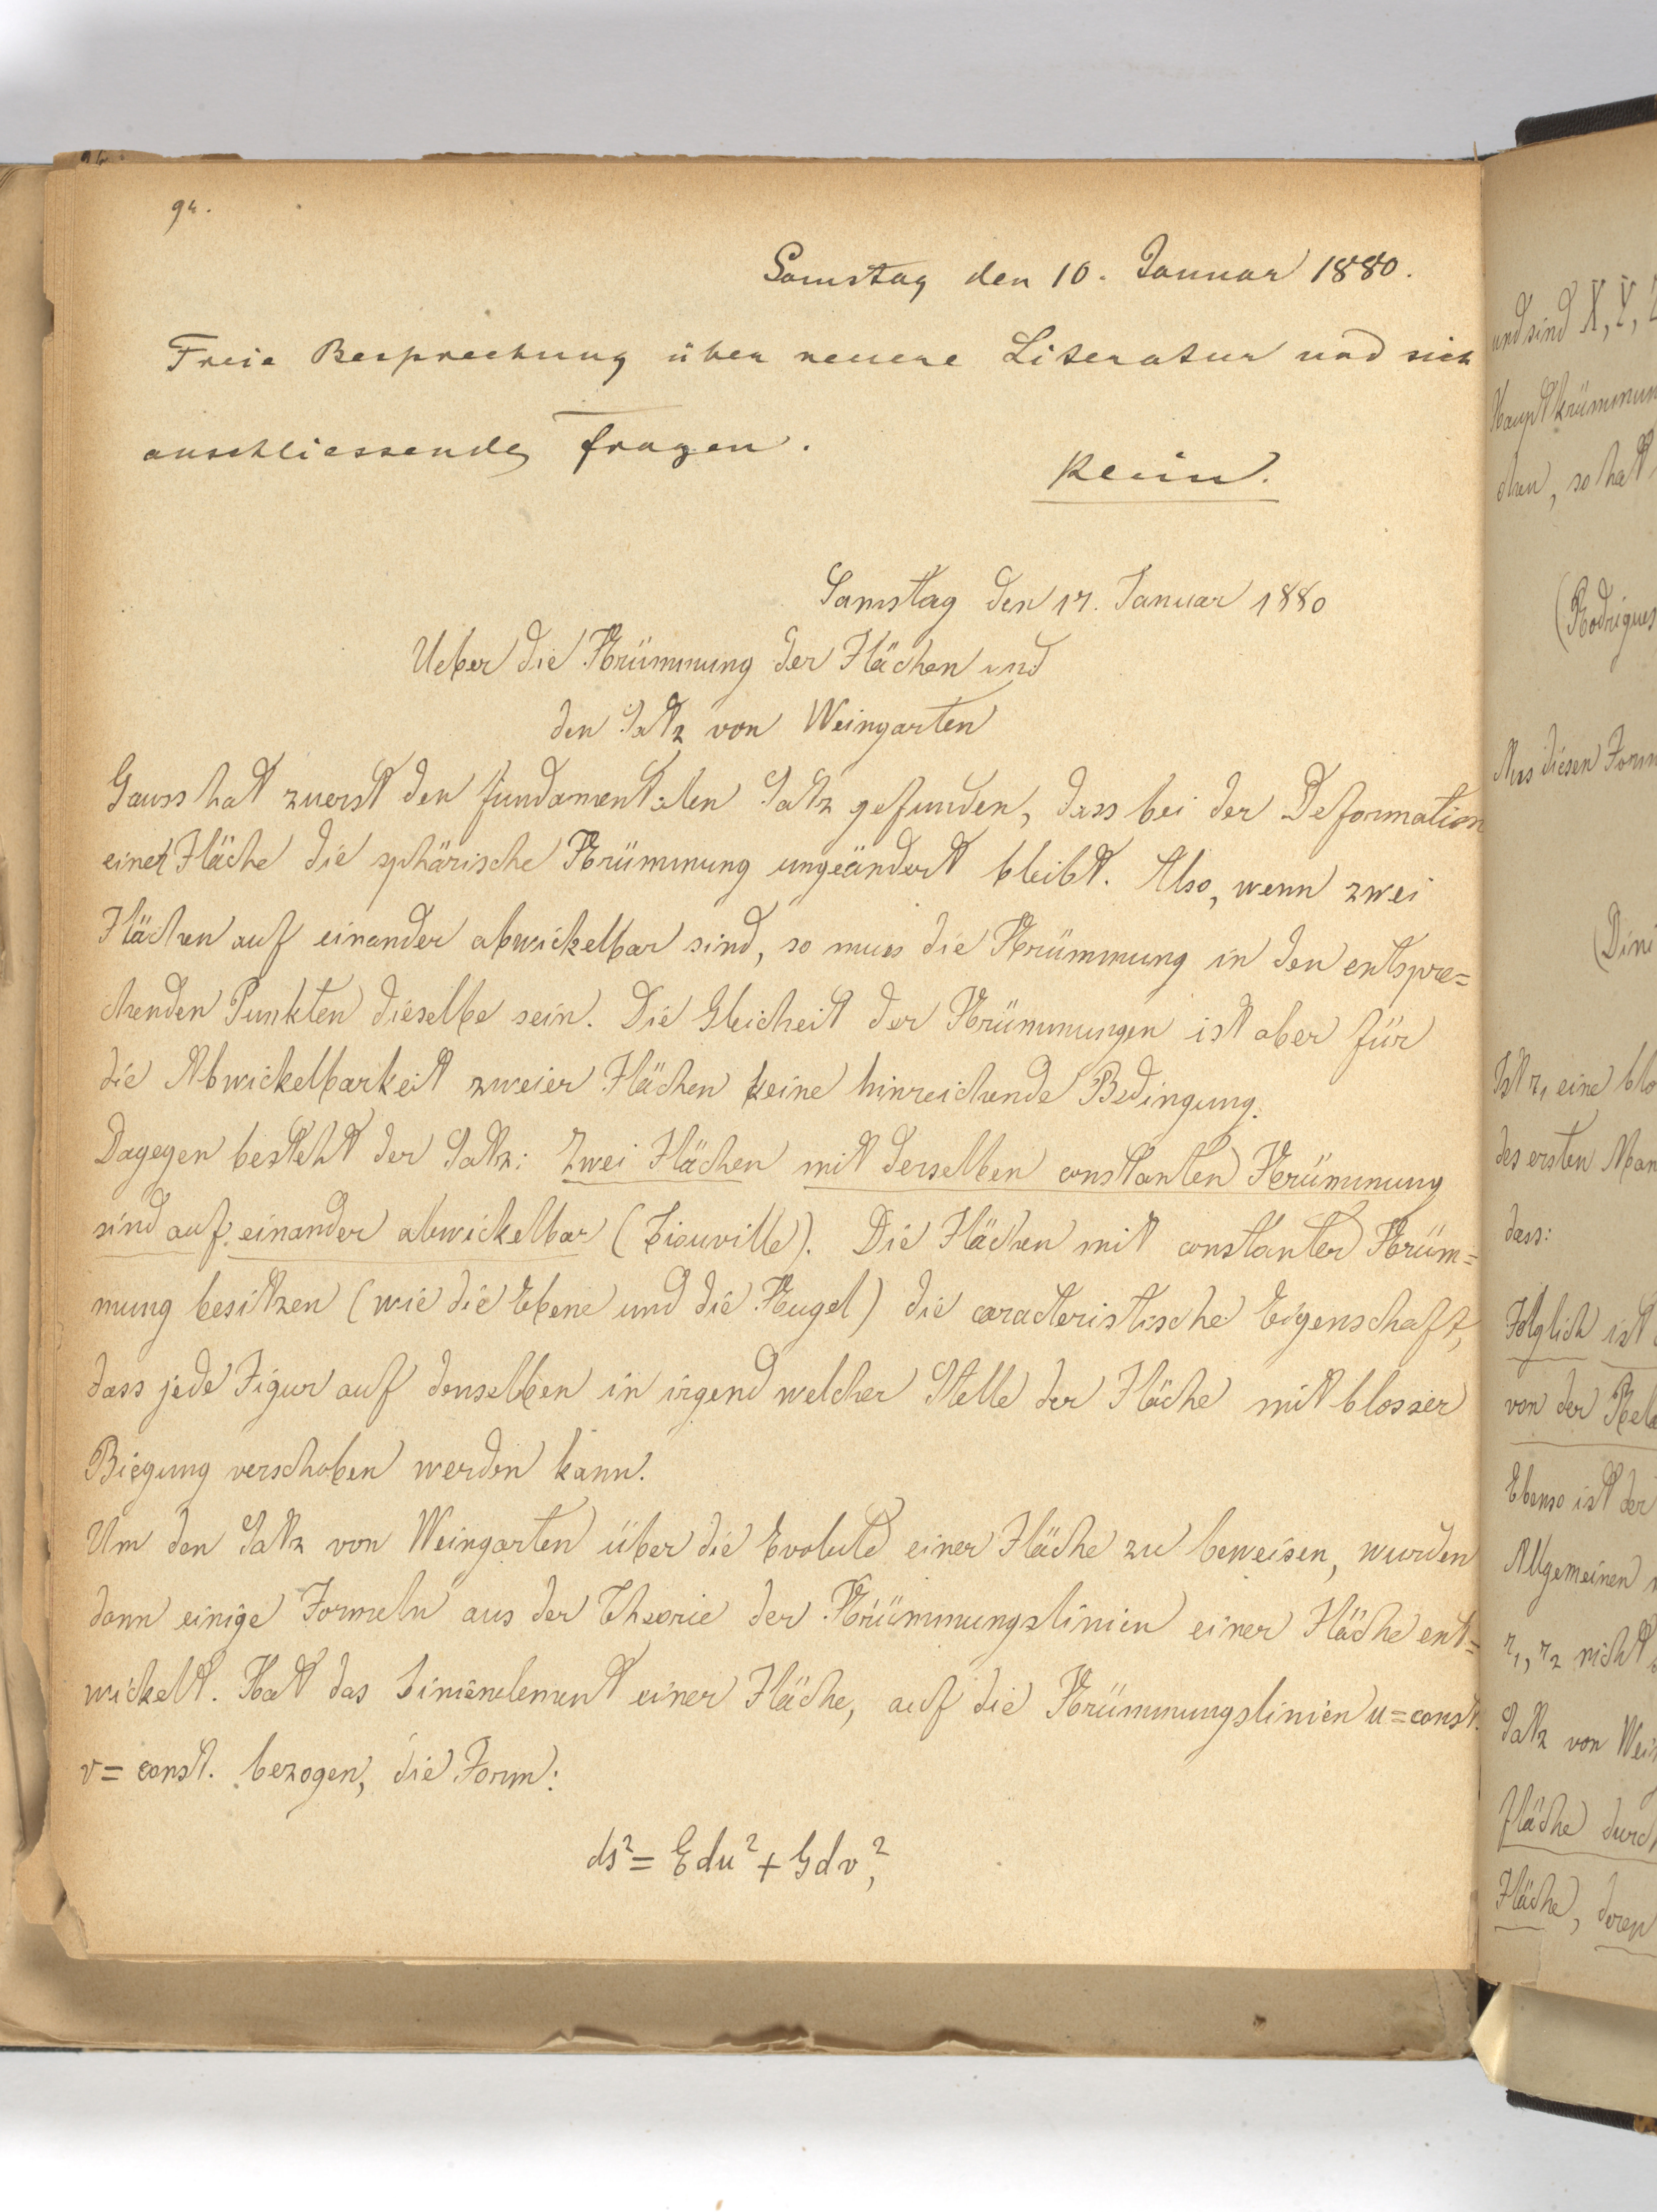 94.
Samstag den 10. Januar 1880.
Freie Besprechung über neuere Literatur und sich
anschliessende Fragen.
Klein.
Samstag den 17. Januar 1880
Ueber die Krümmung der Flächen und
den Satz von Weingarten
Gauss hat zuerst den fundamentalen Satz gefunden, dass bei der Deformation
einer Fläche die sphärische Krümmung ungeändert bleibt. Also, wenn zwei
Flächen auf einander abwickelbar sind, so muss die Krümmung in den entspre=
chenden Punkten dieselbe sein. Die Gleicheit der Krümmungen ist aber für
die Abwickelbarkeit zweier Flächen keine hinreichende Bedingung.
Dagegen besteht der Satz: Zwei Flächen mit derselben constanten Krümmung
sind auf einander abwickelbar (Liouville). Die Flächen mit constanter Krüm=
mung besitzen (wie die Ebene und die Kugel) die caracteristische Eigenschaft,
dass jede Figur auf denselben in irgend welcher Stelle der Fläche mit blosser
Biegung verschoben werden kann.
Um den Satz von Weingarten über die Evolute einer Fläche zu beweisen, wurden
dann einige Formeln aus der Theorie der Krümmungslinien einer Fläche ent=
wickelt. Hat das Linienelement einer Fläche, auf die Krümmungslinien u=const.
v= const. bezogen, die Form:
ds²= Edu² + Gdv²,
und sind X, Y,
Hauptkrümmun
chen, so hat
(Rodrigues
Aus diesen Form
(Dini
Ist r₁ eine blo
des ersten Man
dass:
Folglich ist
von der Rela
Ebenso ist der
Allgemeinen
r₁, r₂ nicht
Satz von Wein
fläche durch
Fläche, deren